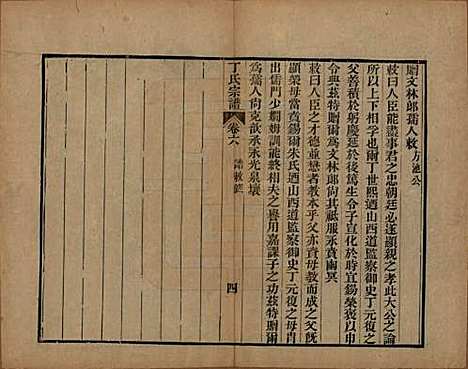 贈文林郎孺人敕 方池公
敕曰人臣能盡事君之忠朝廷必遂顯親之孝此大公之論
所以上下相孚也爾丁世熙迺山西道監察御史丁元復之
父善積於躬慶延於後篤生令子宣化於時宜錫榮褒以申
令典茲特贈爲文林郎其祗服承賁幽冥
敕曰人臣之才德並懋者敎本乎父亦賁母敎而成之父既
顯榮母當賁錫爾朱氏迺山西道監察御史丁元復之母肖
出儒門少嫻姆訓能終相夫之譽用嘉誨子之功茲特贈爾
爲孺人尙克歆承永光泉壤
丁氏宗譜
卷六
誥敕
四